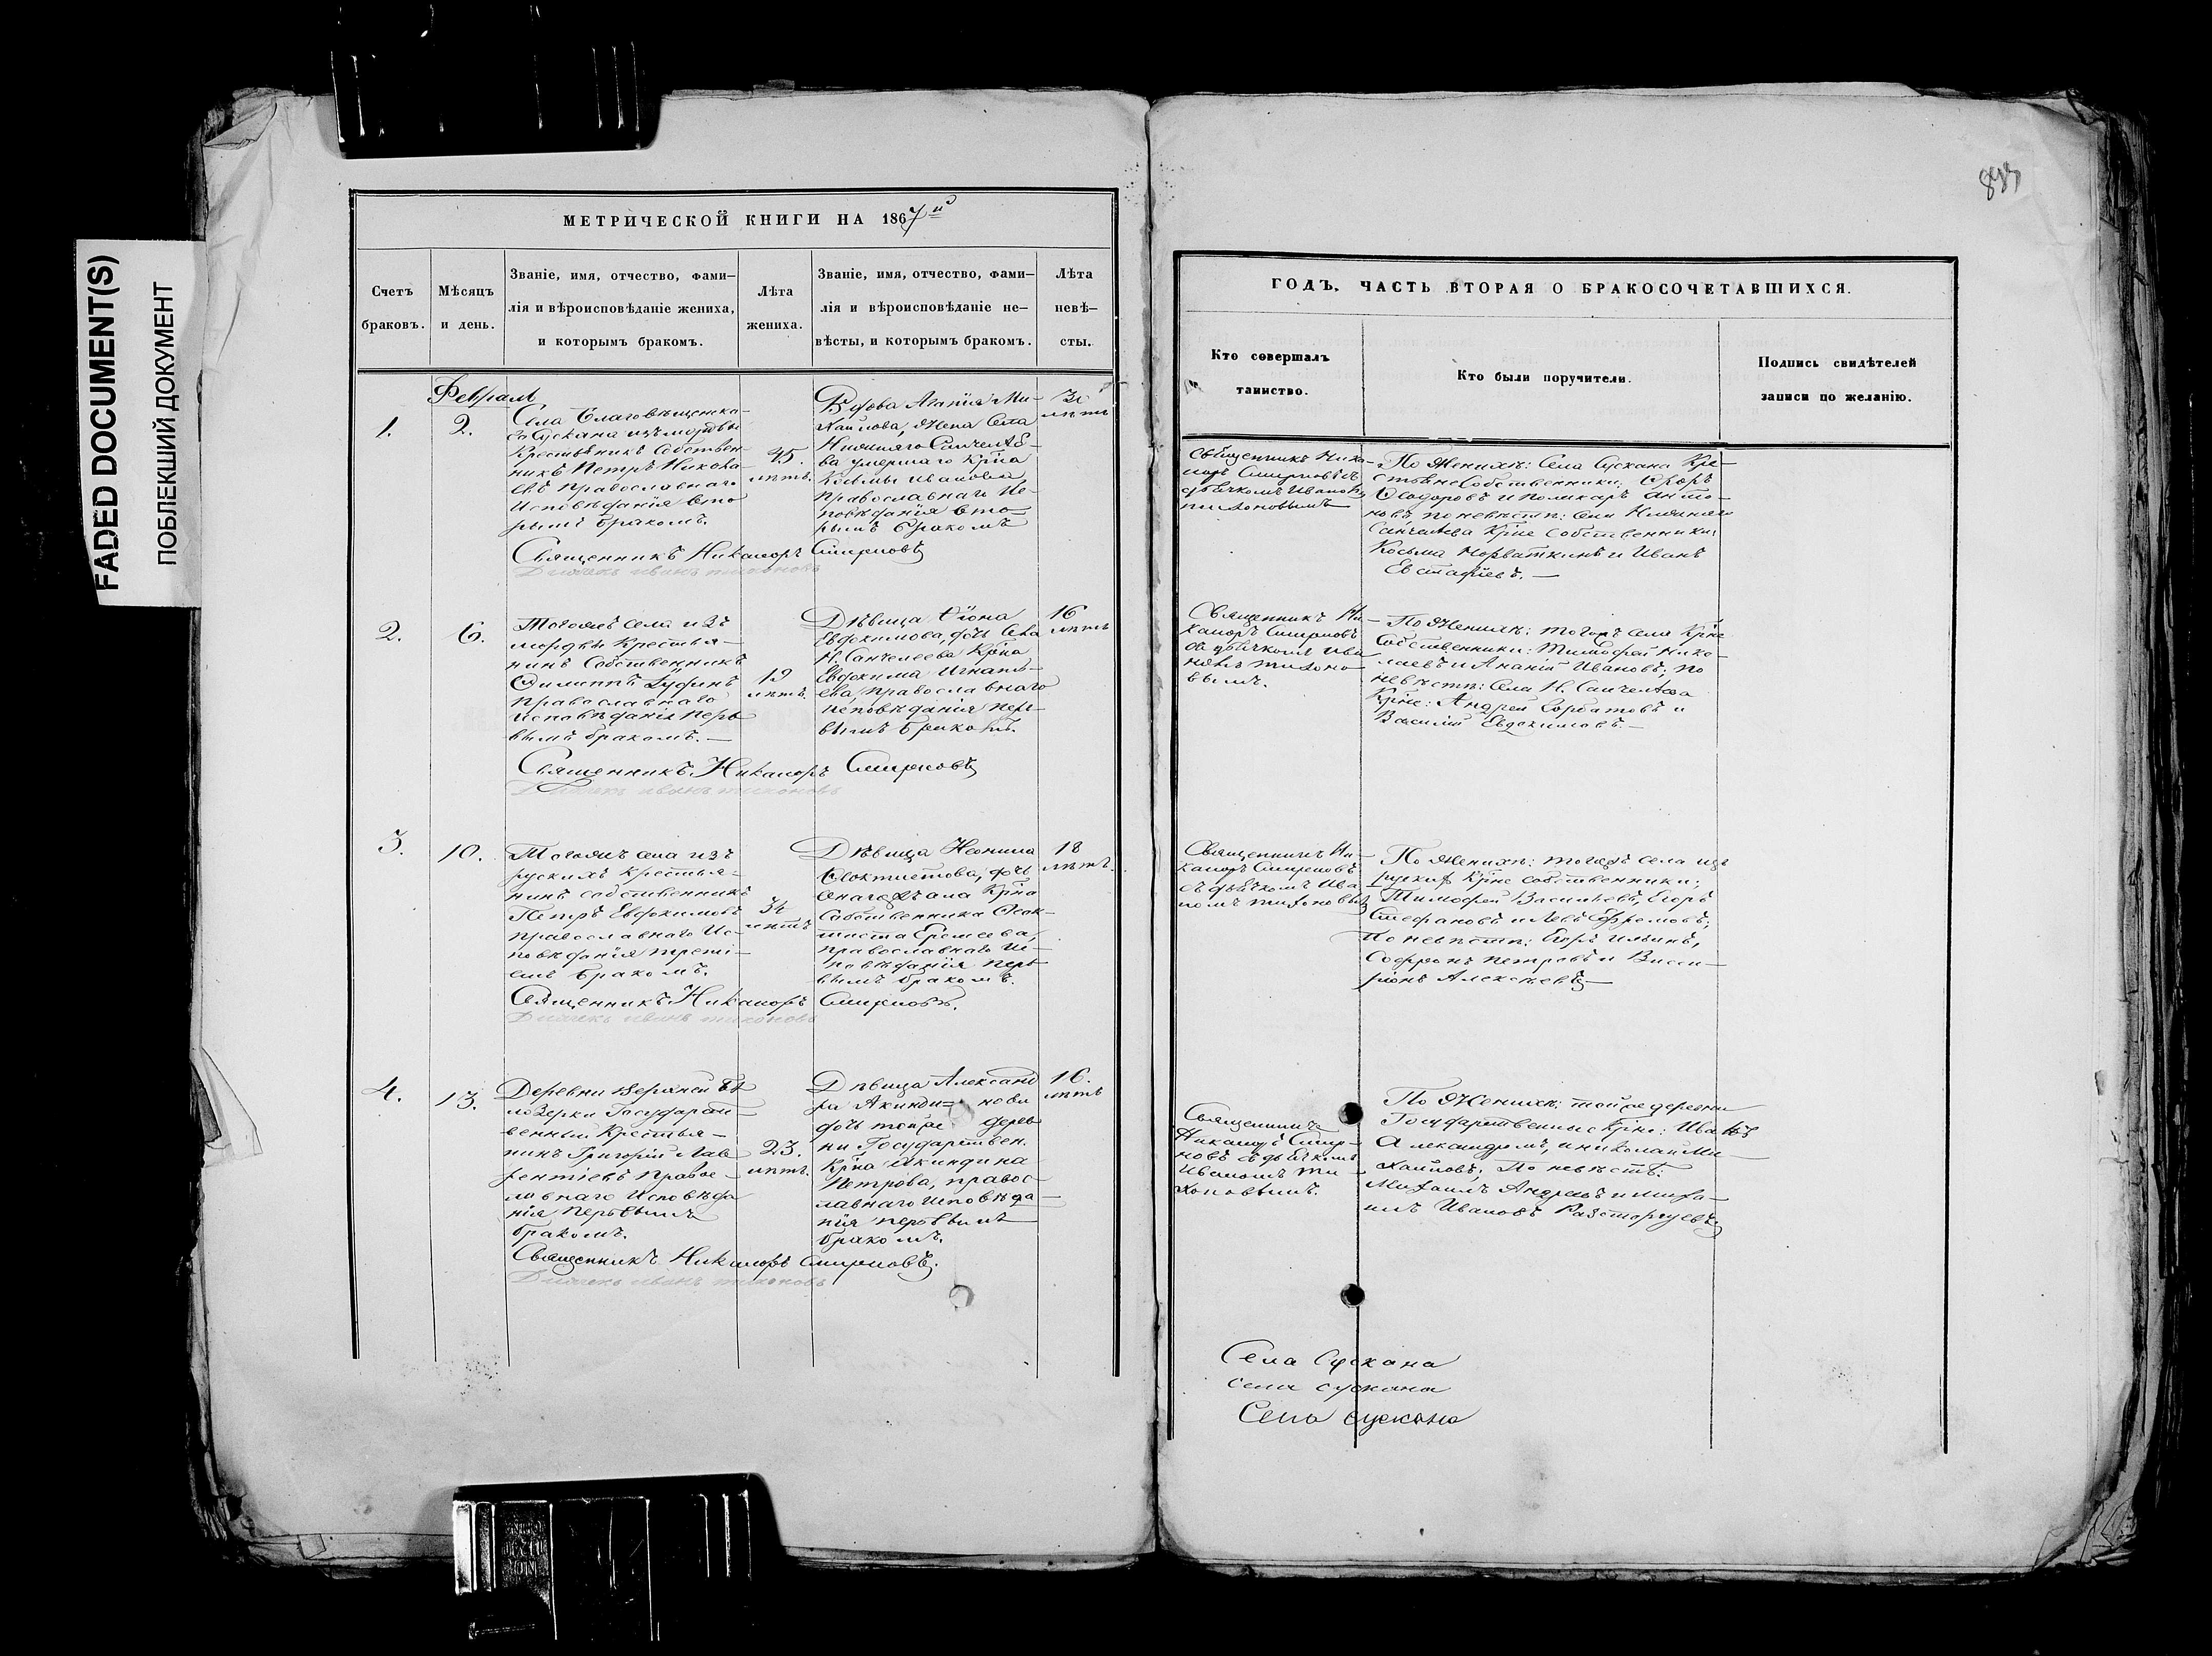 FADED DOCUMENT(S)
ПОБЛЕКШИЙ ДОКУМЕНТ
МЕТРИЧЕСКОЙ КНИГИ НА 1867й
Счетъ
браковъ.
Мѣсяцъ
и день.
Званіе, имя, отчество, фами-
лія и вѣроисповѣданіе жениха,
и которымъ бракомъ.
Лѣта
жениха.
Званіе, имя, отчество, фами-
лія и вѣроисповѣданіе не-
вѣсты, и которымъ бракомъ.
Лѣта
невѣ-
сты.
Февраля
1.
2.
Села Благовѣщенска-
го Сускана изъ мордвы
Крестьянинъ Собствен-
никъ Петръ Никола-
евъ Православнаго
Исповѣданія вто
рымъ бракомъ.
45.
лѣтъ.
Вдова Агапія Ми-
хайлова, Жена Села
Нижняго Санчелѣе-
ва умершаго Кр-на
Козьмы Иванова
Православнаго Ис-
повѣданія вто-
рымъ бракомъ
лѣтъ
Священникъ Никаноръ Смирновъ
Дьячекъ Иванъ Тихоновъ
2.
6.
Тогожъ села изъ
мордвы Крестья-
нинъ Собственникъ
Филиппъ
Православнаго
Исповѣданія пер
вымъ бракомъ.
19
лѣтъ.
Дѣвица
Евдокимова, дочь Села
Н. Санчелеева Кр-на
Евдокима Игнать-
ева, православнаго
исповѣданія пер-
вымъ бракомъ.
16
лѣтъ
Священникъ Никаноръ Смирновъ
Дьячекъ Иванъ Тихоновъ
3.
10.
Тогожъ села изъ
рускихъ крестья-
нинъ собственникъ
Петръ Евдокимовъ
православнаго Ис-
повѣданія трети-
емъ бракомъ.
34
лѣтъ
Дѣвица Неонила
Феоктистова, дочь
онаго села Кр-на
Собственника Феок-
тиста Еремеева,
православнаго Ис-
повѣданія пер-
вымъ бракомъ.
18
лѣтъ.
Священникъ Никаноръ Смирновъ.
Дьячекъ Иванъ Тихоновъ
4.
13.
Деревни Верхней Бѣ
лозерки Государст-
венный Крестья-
нинъ Григорій Лав
рентіевъ Правос-
лавнаго Исповѣда
нія первымъ
бракомъ.
23.
лѣтъ.
Дѣвица Александ
ра Акинди- нова
дочь тойже дерев
ни Государствен.
Кр-на Акиндина
Петрова, правос-
лавнаго Исповѣда-
нія первымъ
бракомъ.
16.
лѣтъ
Священникъ Никаноръ Смирновъ.
Дьячекъ Иванъ Тихоновъ
ГОДЪ. ЧАСТЬ ВТОРАЯ О БРАКОСОЧЕТАВШИХСЯ.
Кто совершалъ
таинство.
Кто были поручители.
Подпись свидѣтелей
записи по желанію.
Священникъ Ника-
норъ Смирновъ съ
дьячкомъ Иваном
Тихоновымъ
По Женихѣ: Села Сускана Кре-
стьяне Собственники:
Феодоровъ и Поликарпъ Анто-
новъ по невѣстѣ: села Нижняго
Санчелѣева Кр-не Собственники:
Козьма и Иванъ
Евстафіевъ.
Священникъ Ни-
каноръ Смирновъ
съ дьячкомъ Ива
номъ Тихоно-
вымъ.
По Женихѣ: тогожъ села Кр-не
Собственники: Тимофей Нико-
лаевъ и Ананій Ивановъ; по
невѣстѣ: Села Н. Санчелѣева
Кр-не: Андрей Горбатовъ и
Василій Евдокимовъ.
Священникъ Ни-
каноръ Смирновъ
съ дьячкомъ Ива
номъ Тихоновым
По женихѣ: тогожъ села изъ
рускихъ Кр-не собственники;
Тимофей Васильевъ, Егоръ
Стефановъ и Левъ Ефремовъ;
По невѣстѣ: Егоръ Ильинъ,
Софронъ Петровъ и Висса-
ріонъ Алексѣевъ
Священникъ
Никаноръ Смир-
новъ съ дьячкомъ
Иваномъ Ти-
хоновымъ.
По Женихѣ: тойже деревни
Государственные Кр-не: Иванъ
Александровъ, и Николай Ми-
хайловъ; По невѣстѣ:
Михаилъ Андреевъ и Миха-
илъ Ивановъ Разсторгуевъ
Села Сускана
Села Сускана
Села Сускана